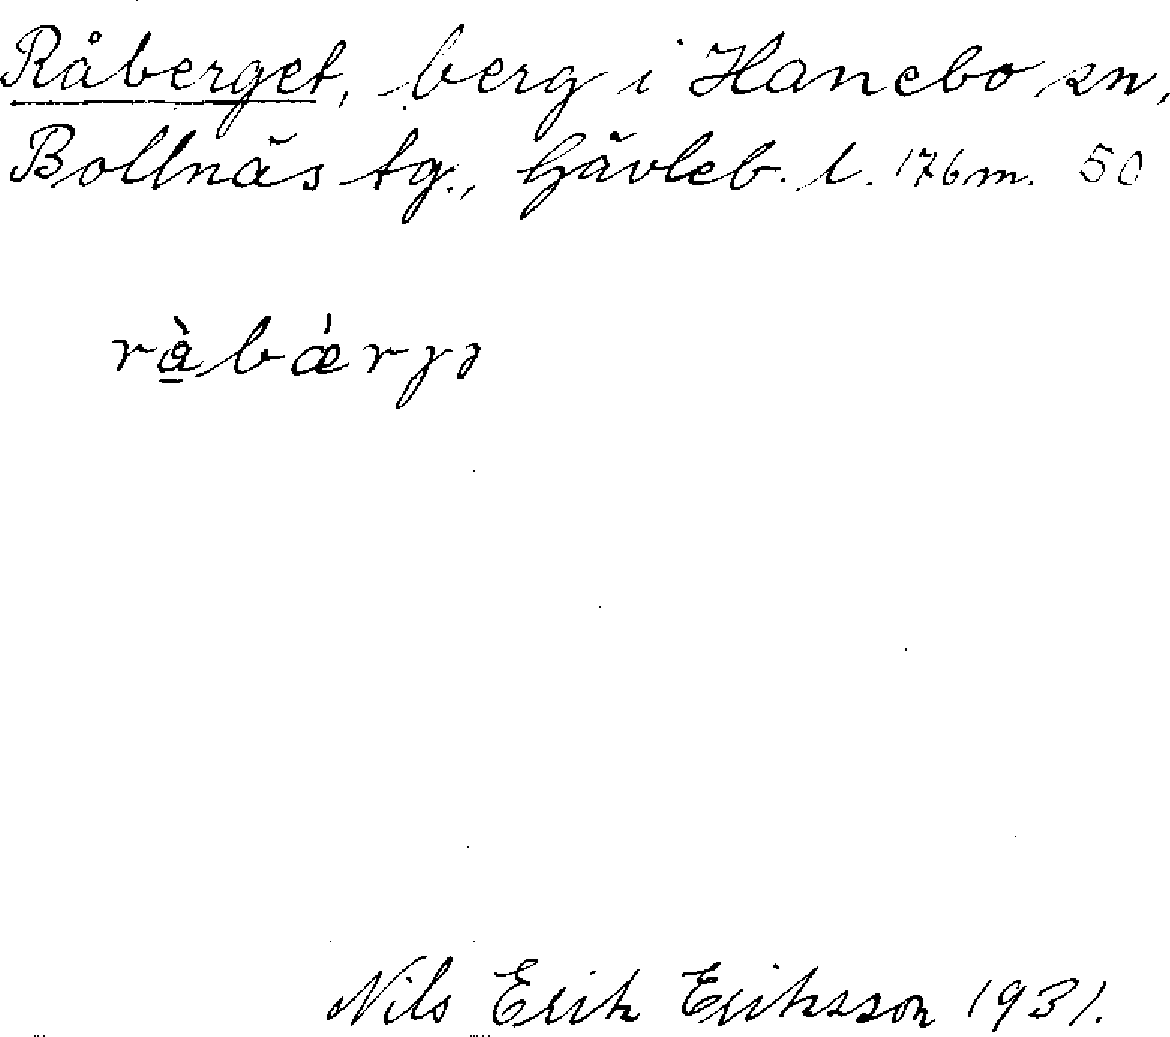 Råberget, berg i Hanebo sn,
Bollnäs tg., Gävleb. l. 176m. 50
rà̱bǽrɟə
Nils Erik Eriksson 1931.